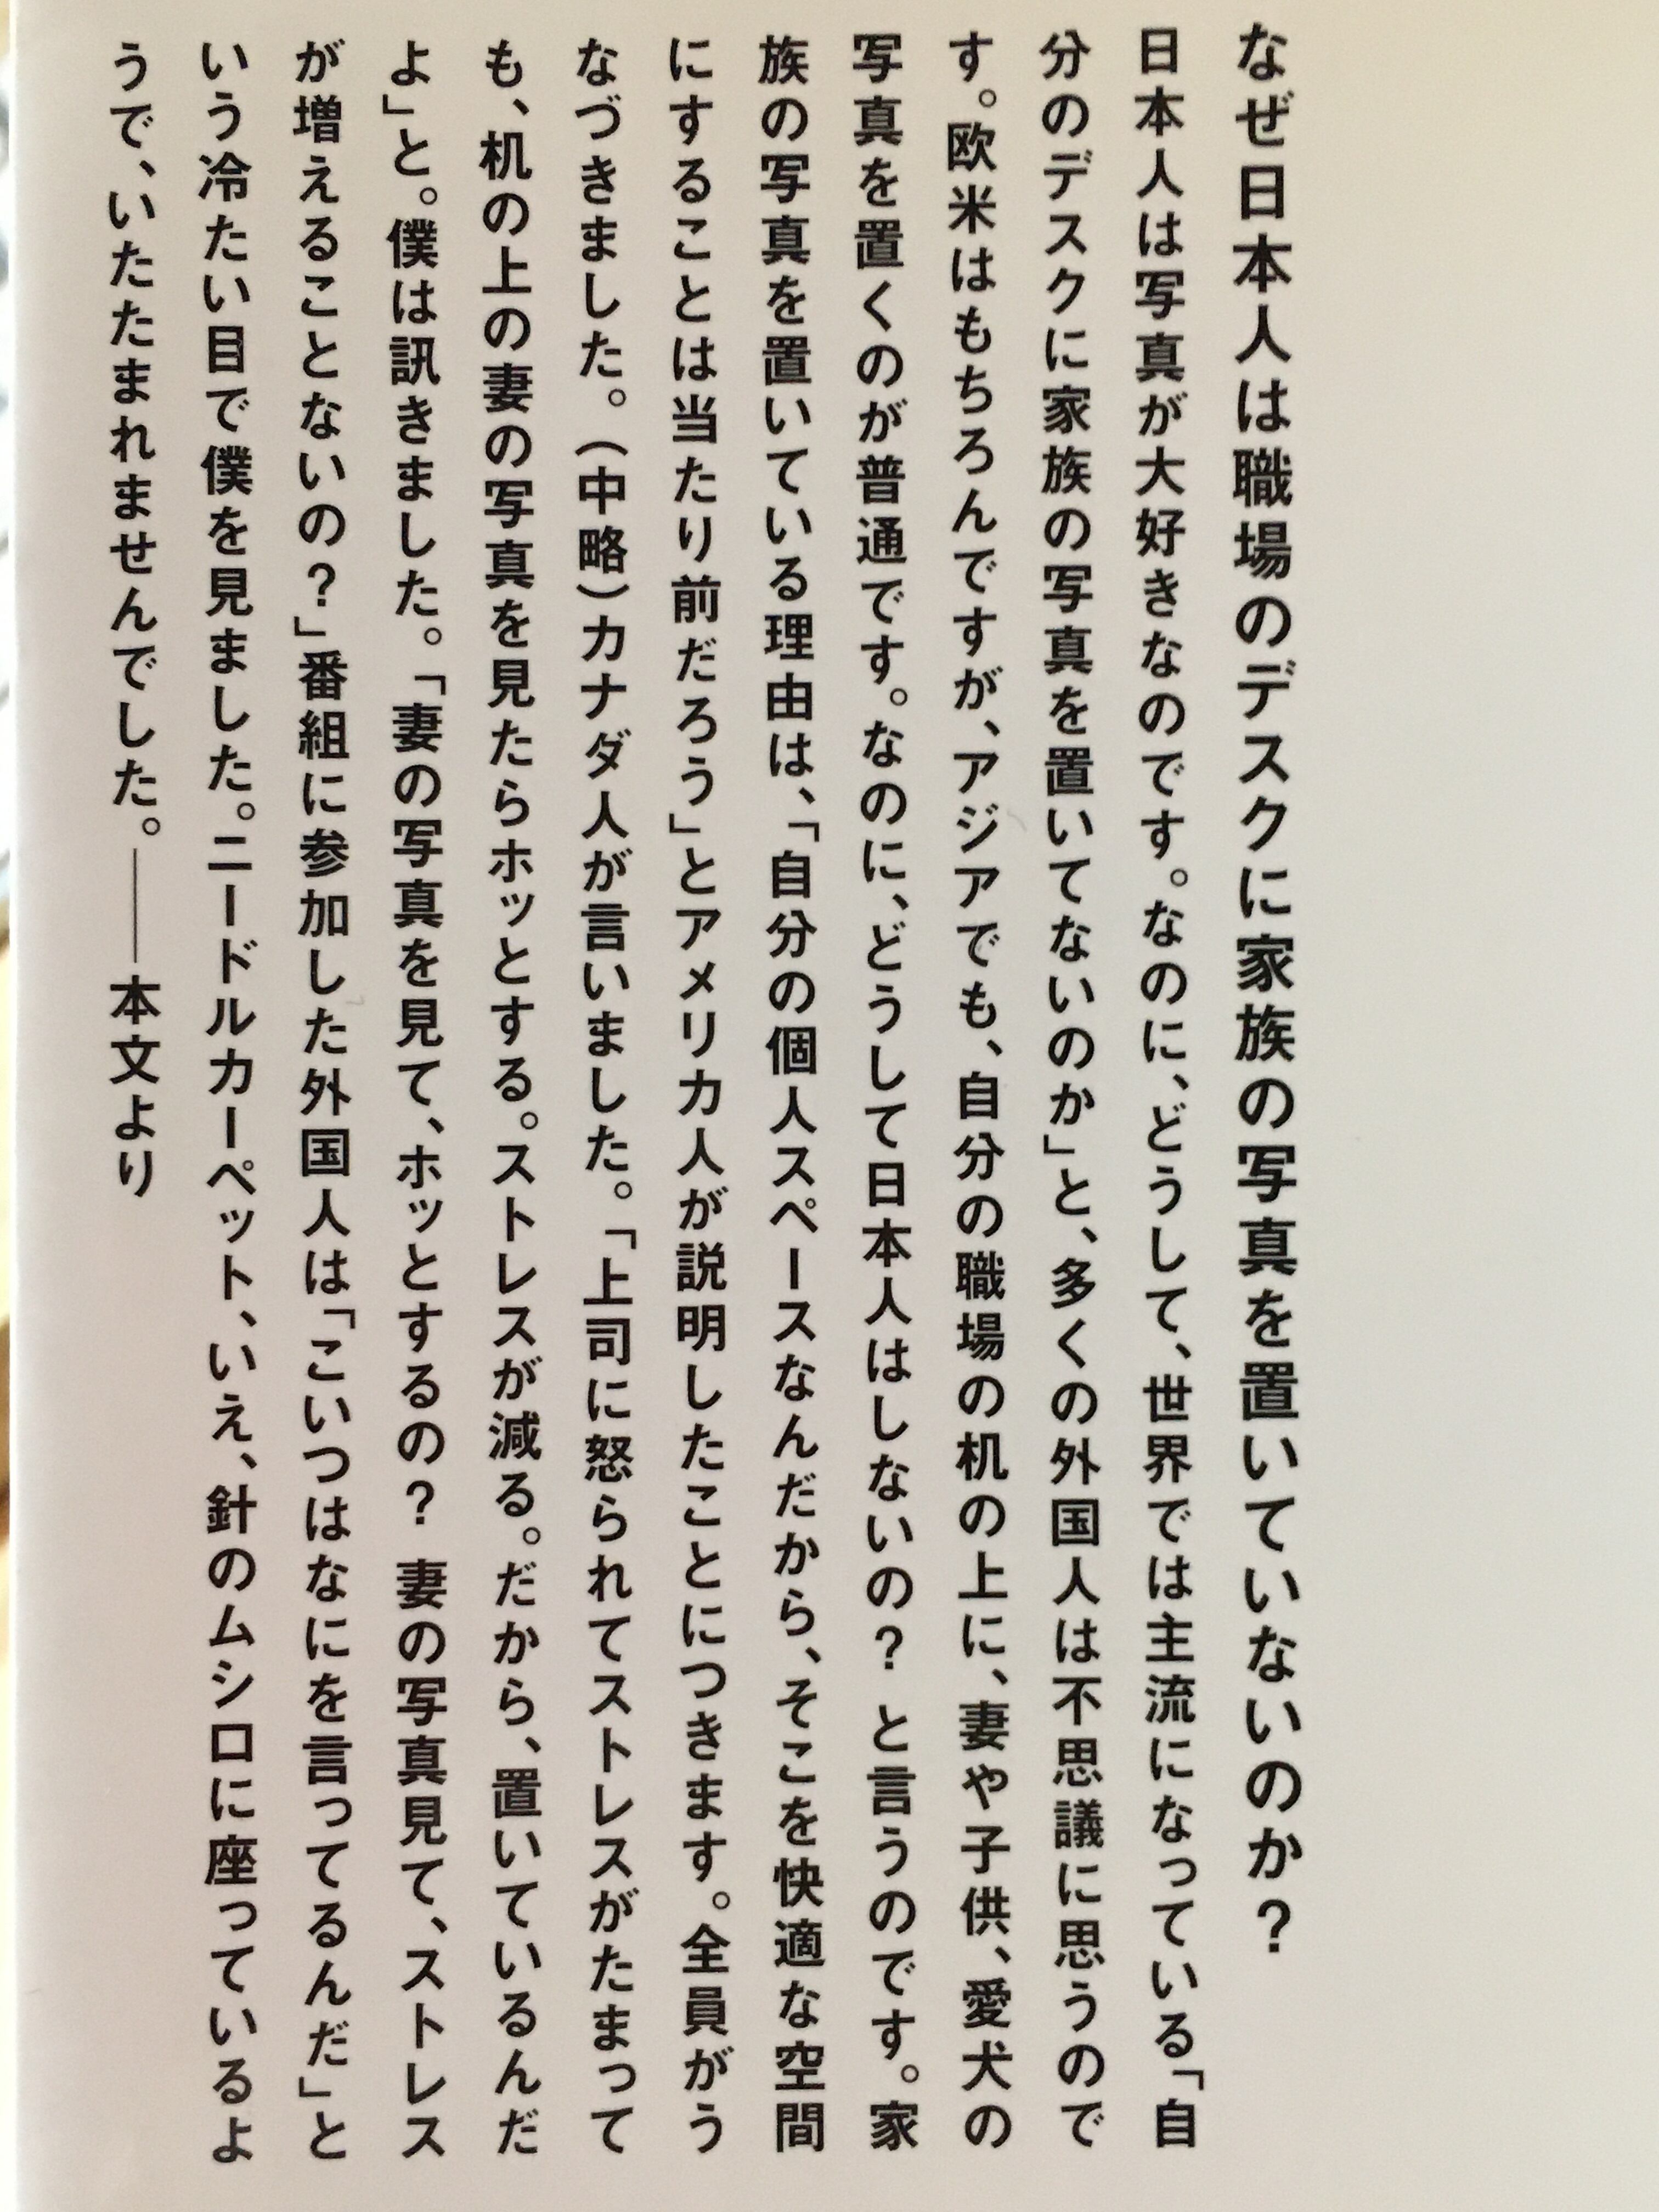 なぜ日本人は職場のデスクに家族の写真を置いていないのか?
日本人は写真が大好きなのです。なのに、どうして、世界では主流になっている「自
分のデスクに家族の写真を置いてないのか」と、多くの外国人は不思議に思うので
す。欧米はもちろんですが、アジアでも、自分の職場の机の上に、妻や子供、愛犬の
写真を置くのが普通です。なのに、どうして日本人はしないの? と言うのです。家
族の写真を置いている理由は、「自分の個人スペースなんだから、そこを快適な空間
にすることは当たり前だろう」とアメリカ人が説明したことにつきます。全員がう
なづきました。(中略)カナダ人が言いました。「上司に怒られてストレスがたまって
も、机の上の妻の写真を見たらホッとする。ストレスが減る。だから、置いているんだ
よ」と。僕は訊きました。「妻の写真を見て、ホッとするの? 妻の写真見て、ストレス
が増えることないの?」番組に参加した外国人は「こいつはなにを言ってるんだ」と
いう冷たい目で僕を見ました。ニードルカーペット、いえ、針のムシロに座っているよ
うで、いたたまれませんでした。――本文より